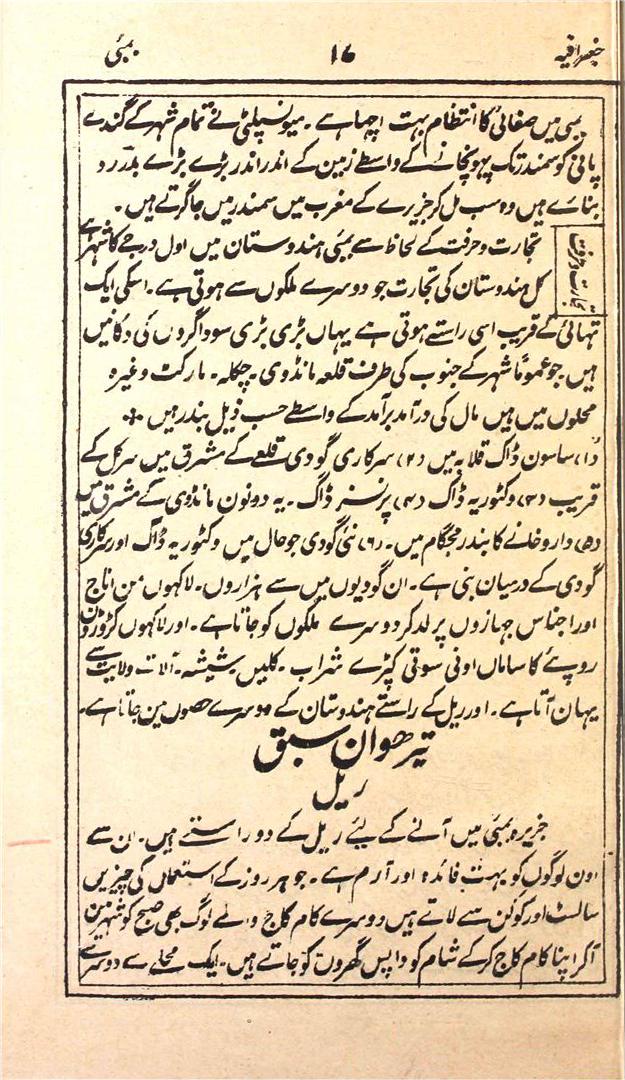 جغرافیہ ۱۷ بمبئی
بمبئی میں صفائی کا انتظام بہت اچہا ہے ۔ میونسپلٹی نے تمام شہر کے گندے
پانی کو سمندر تک پہونچانے کے واسطے زمین کے اندر اندر بڑے بڑے بدررو
بنائے ہیں وہ سب مل کر جزیرے کے مغرب میں سمندر میں جا گرتے ہیں ۔
تجارت و حرفت
تجارت و حرفت کے لحاظ سے بمبئی ہندوستان میں اول درجے کا شہر ہے
کل ہندوستان کی تجارت جو دوسرے ملکوں سے ہوتی ہے ۔ اسکی ایک
تہائی کے قریب اسی راستے ہوتی ہے یہاں بڑی بڑی سوداگروں کی دکانیں
ہیں جو عموماً شہر کے جنوب کی طرف قلعہ مانڈوی ۔ چکلہ ۔ مارکٹ وغیرہ
محلوں میں ہیں مال کی درآمد برآمد کے واسطے حسب ذیل بندر ہیں
(۱) ساسون ڈاک قلابہ میں (۲) سرکاری گودی قلعے کے مشرق میں سرکل کے
قریب (۳) وکٹوریہ ڈاک (۴) پرنسز ڈاگ ۔ یہ دونون مانڈوی کے مشرق میں
(۵) داروخانے کا بندر مجگام میں ۔ (۶) نئی گودی جو حال میں وکٹوریہ ڈاگ اور سرکاری
گودی کے درمیان بنی ہے ۔ ان گودیوں میں سے ہزاروں ۔ لاکہوں من اناج
اور اجناس جہازوں پر لد کر دوسرے ملکوں کو جاتا ہے ۔ اور لاکہوں کروڑوں
روپئے کا ساماں اونی سوتی کپڑے شراب ۔ کلیں ۔ شیشہ ۔ آلات ولایت سے
یہان آتا ہے ۔ اور ریل کے راستے ہندوستان کے دوسرے حصوں مین جاتا ہے ۔
تیرھوان سبق
ریل
جزیرہ بمبئی میں آنے کے لیئے ریل کے دو راستے ہیں ۔ ان سے
اون لوگوں کو بہت فائدہ اور آرم ہے ۔ جو ہر روز کے استعمال کی چیزیں
سالسٹ اور کوکن سے لاتے ہیں دوسرے کام کاج والے لوگ بھی صبح کو شہر مین
آکر اپنا کام کاج کر کے شام کو واپس گھروں کو جاتے ہیں ۔ ایک محلے سے دوسرے